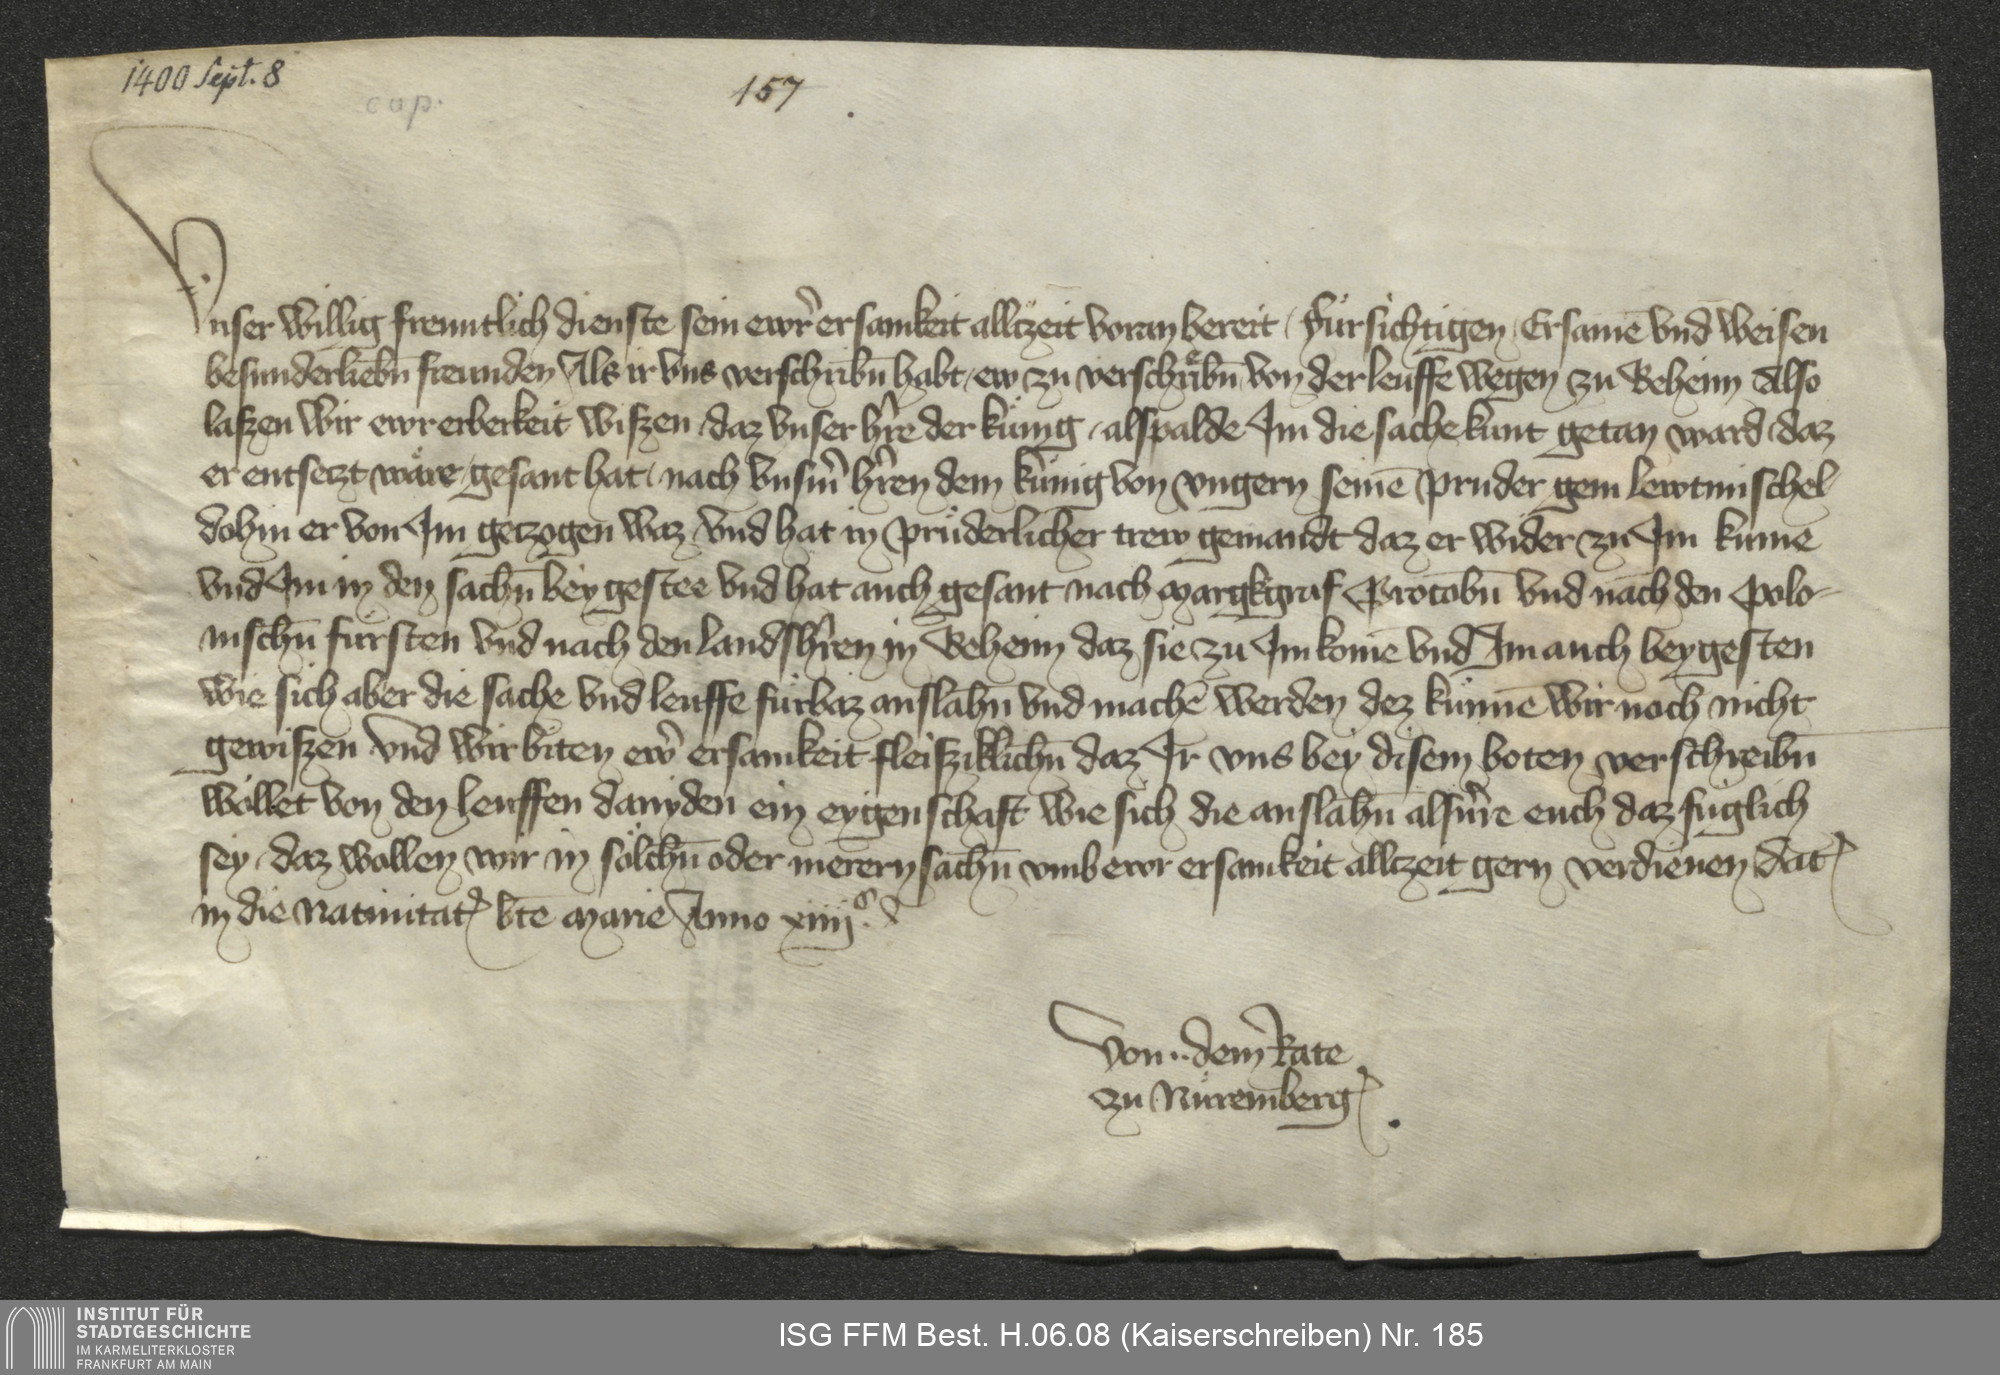 1400 Sept. 8
cop.
157
Vnser willig freuntlich dienste sein ewr̄ ersamkeit allczeit voran bereit / fürsichtigen Ersamē vnd weisen
besunderliebn̄ freunden Als ir vns verschribn̄ habt / ew zu verschreibn̄ von der leuffe wegen zu Beheim Also
laszen wir ewr erberkeit wiszen / daz vnser hr̄re der künig / alspalde Im die sache kunt getan ward daz
er entseczt wäre / gesant hat / nach vnsm̄ hr̄ren dem künig von vngern seinē pruder gem lewtmischel
dohin er von Im geczogen waz vnd hat in prüderlicher trew gemandt daz er wider zu Im kume
vnd Im in den sachn̄ bey gestee vnd hat auch gesant nach margkgraf Procobn̄ vnd nach den Polo-
nischn̄ fürsten vnd nach den landshr̄ren in Beheim daz sie zu Im komē vnd Im auch beygesten
wie sich aber die sache vnd leuffe fürbaz auslahn̄ vnd machē werden dez künnē wir noch nicht
gewiszen vnd wir biten ewr̄ ersamkeit fleisziklichn̄ daz Ir vns bey disem boten verschreibn̄
wöllet von den leuffen danyden ein eygenschaft wie sich die auslahn̄ alsuerre euch daz füglich
sey / daz wollen wir in sölchn̄ oder merern sachn̄ vmb ewr ersamkeit allczeit gern verdienen dat̄
in die natiuitat̄ bt̄e marie Anno xiiijᶜ
Von .. dem Rate
zu Nüremberg
INSTITUT FÜR
STADTGESCHICHTE
IM KARMELITERKLOSTER
FRANKFURT AM MAIN
ISG FFM Best. H.06.08 (Kaiserschreiben) Nr. 185